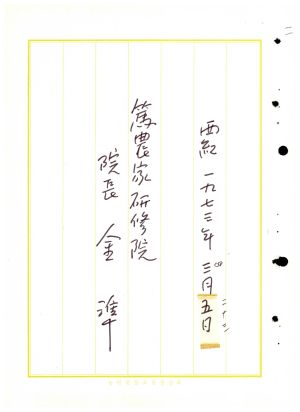 西紀 一九七三年 三月五日
四
篤農家研修院
院長 金 準